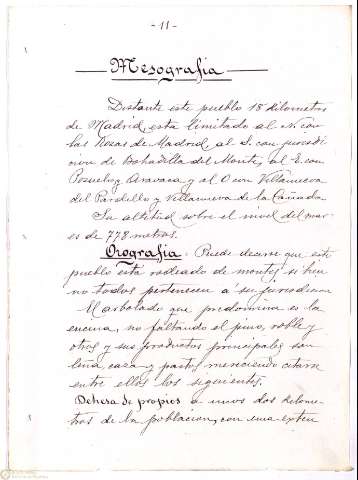 - 11 -
Mesografia
Distante este pueblo 18 kilometros
de Madrid, está limitado al N. con
las Rozas de Madrid, al S. con jurisdi
cion de Bobadilla del Monte, al E. con
Pozuelo y Aravaca y al O con Villanueva
del Pardillo y Villanueva de la Cañada.
Su altitud sobre el nivel del mar
es de 778 metros.
Orografia. Puede decirse que este
pueblo está rodeado de montes si bien
no todos pertenecen a su jurisdicion
El arbolado que predomina es la
encina, no faltando el pino, roble y
otros y sus productos principales son
leña caza y pastos mereciendo citarse
entre ellos los siguientes.
Dehesa de propios a unos dos kilome-
tros de la poblacion, con una exten